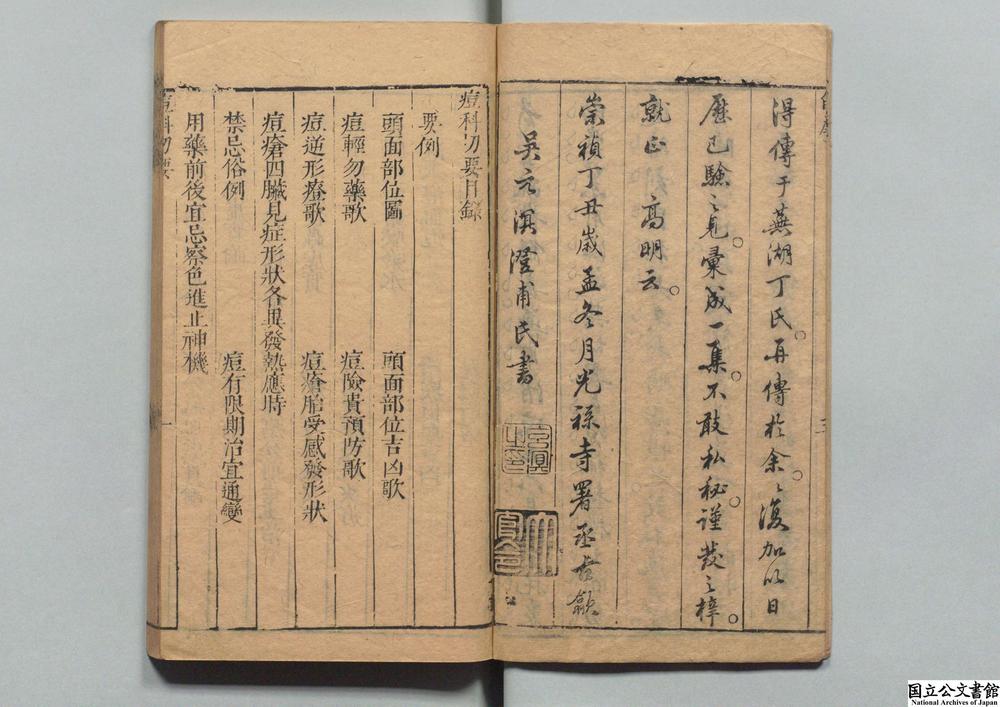 得傳于蕪湖丁氏。再傳於余。余復加以日
歷已驗之見。彙成一集。不敢私秘。謹發之梓。
就正 高明云。
崇禎丁丑歲孟冬月光祿寺署丞古歙
吳元溟澄甫氏書
痘科切要目錄
要例
頭面部位圖 頭面部位吉凶歌
痘輕勿藥歌 痘險貴預防歌
痘逆形療歌 痘瘡胎受感發形狀
痘瘡四臟見症形狀各異發熱應時
禁忌俗例 痘有限期治宜通變
用藥前後宜忌察色進止神機
痘科切要 一
国立公文書館
National Archives of Japan